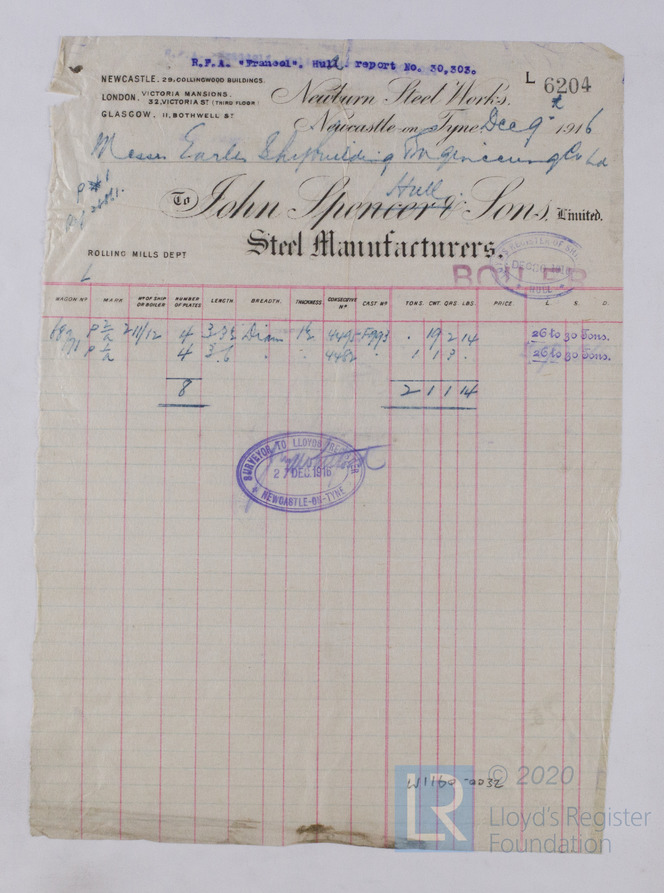 R.F.A. "Francol". Hull report No. 30,303.
NEWCASTLE. 29, COLLINGWOOD BUILDINGS.
LONDON. VICTORIA MANSIONS.
32, VICTORIA ST (THIRD FLOOR)
GLASGOW. 11, BOTHWELL ST
L 6204
Newburn Steel Works.
Newcastle-on-Tyne Dec 9 1916
Messrs Earles Shipbuilding & Engineering Co Ld
Hull
To John Spencer & Sons, Limited.
Steel Manufacturers.
ROLLING MILLS DEPT
BOILER
WAGON No MARK No OF SHIP OR BOILER NUMBER OF PLATES LENGTH. BREADTH. THICKNESS. CONSECUTIVE No CAST No TONS. CWT. QRS. LBS. PRICE. L. S. D.
211/12 4 Diam 4495 . 19 2 14 26 to 30 Tons.
4 3.6 . . 4482 . 1 1 3 . 26 to 30 Tons.
8 2 1 1 14
SURVEYOR TO LLOYDS REGISTER
27 DEC. 1916
NEWCASTLE-ON-TYNE
W1160-0032
© 2020
LR
Lloyd's Register
Foundation